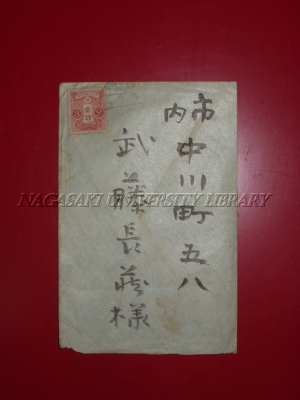 市内中川町五八
武藤長蔵様
NAGASAKI UNIVERSITY LIBRARY